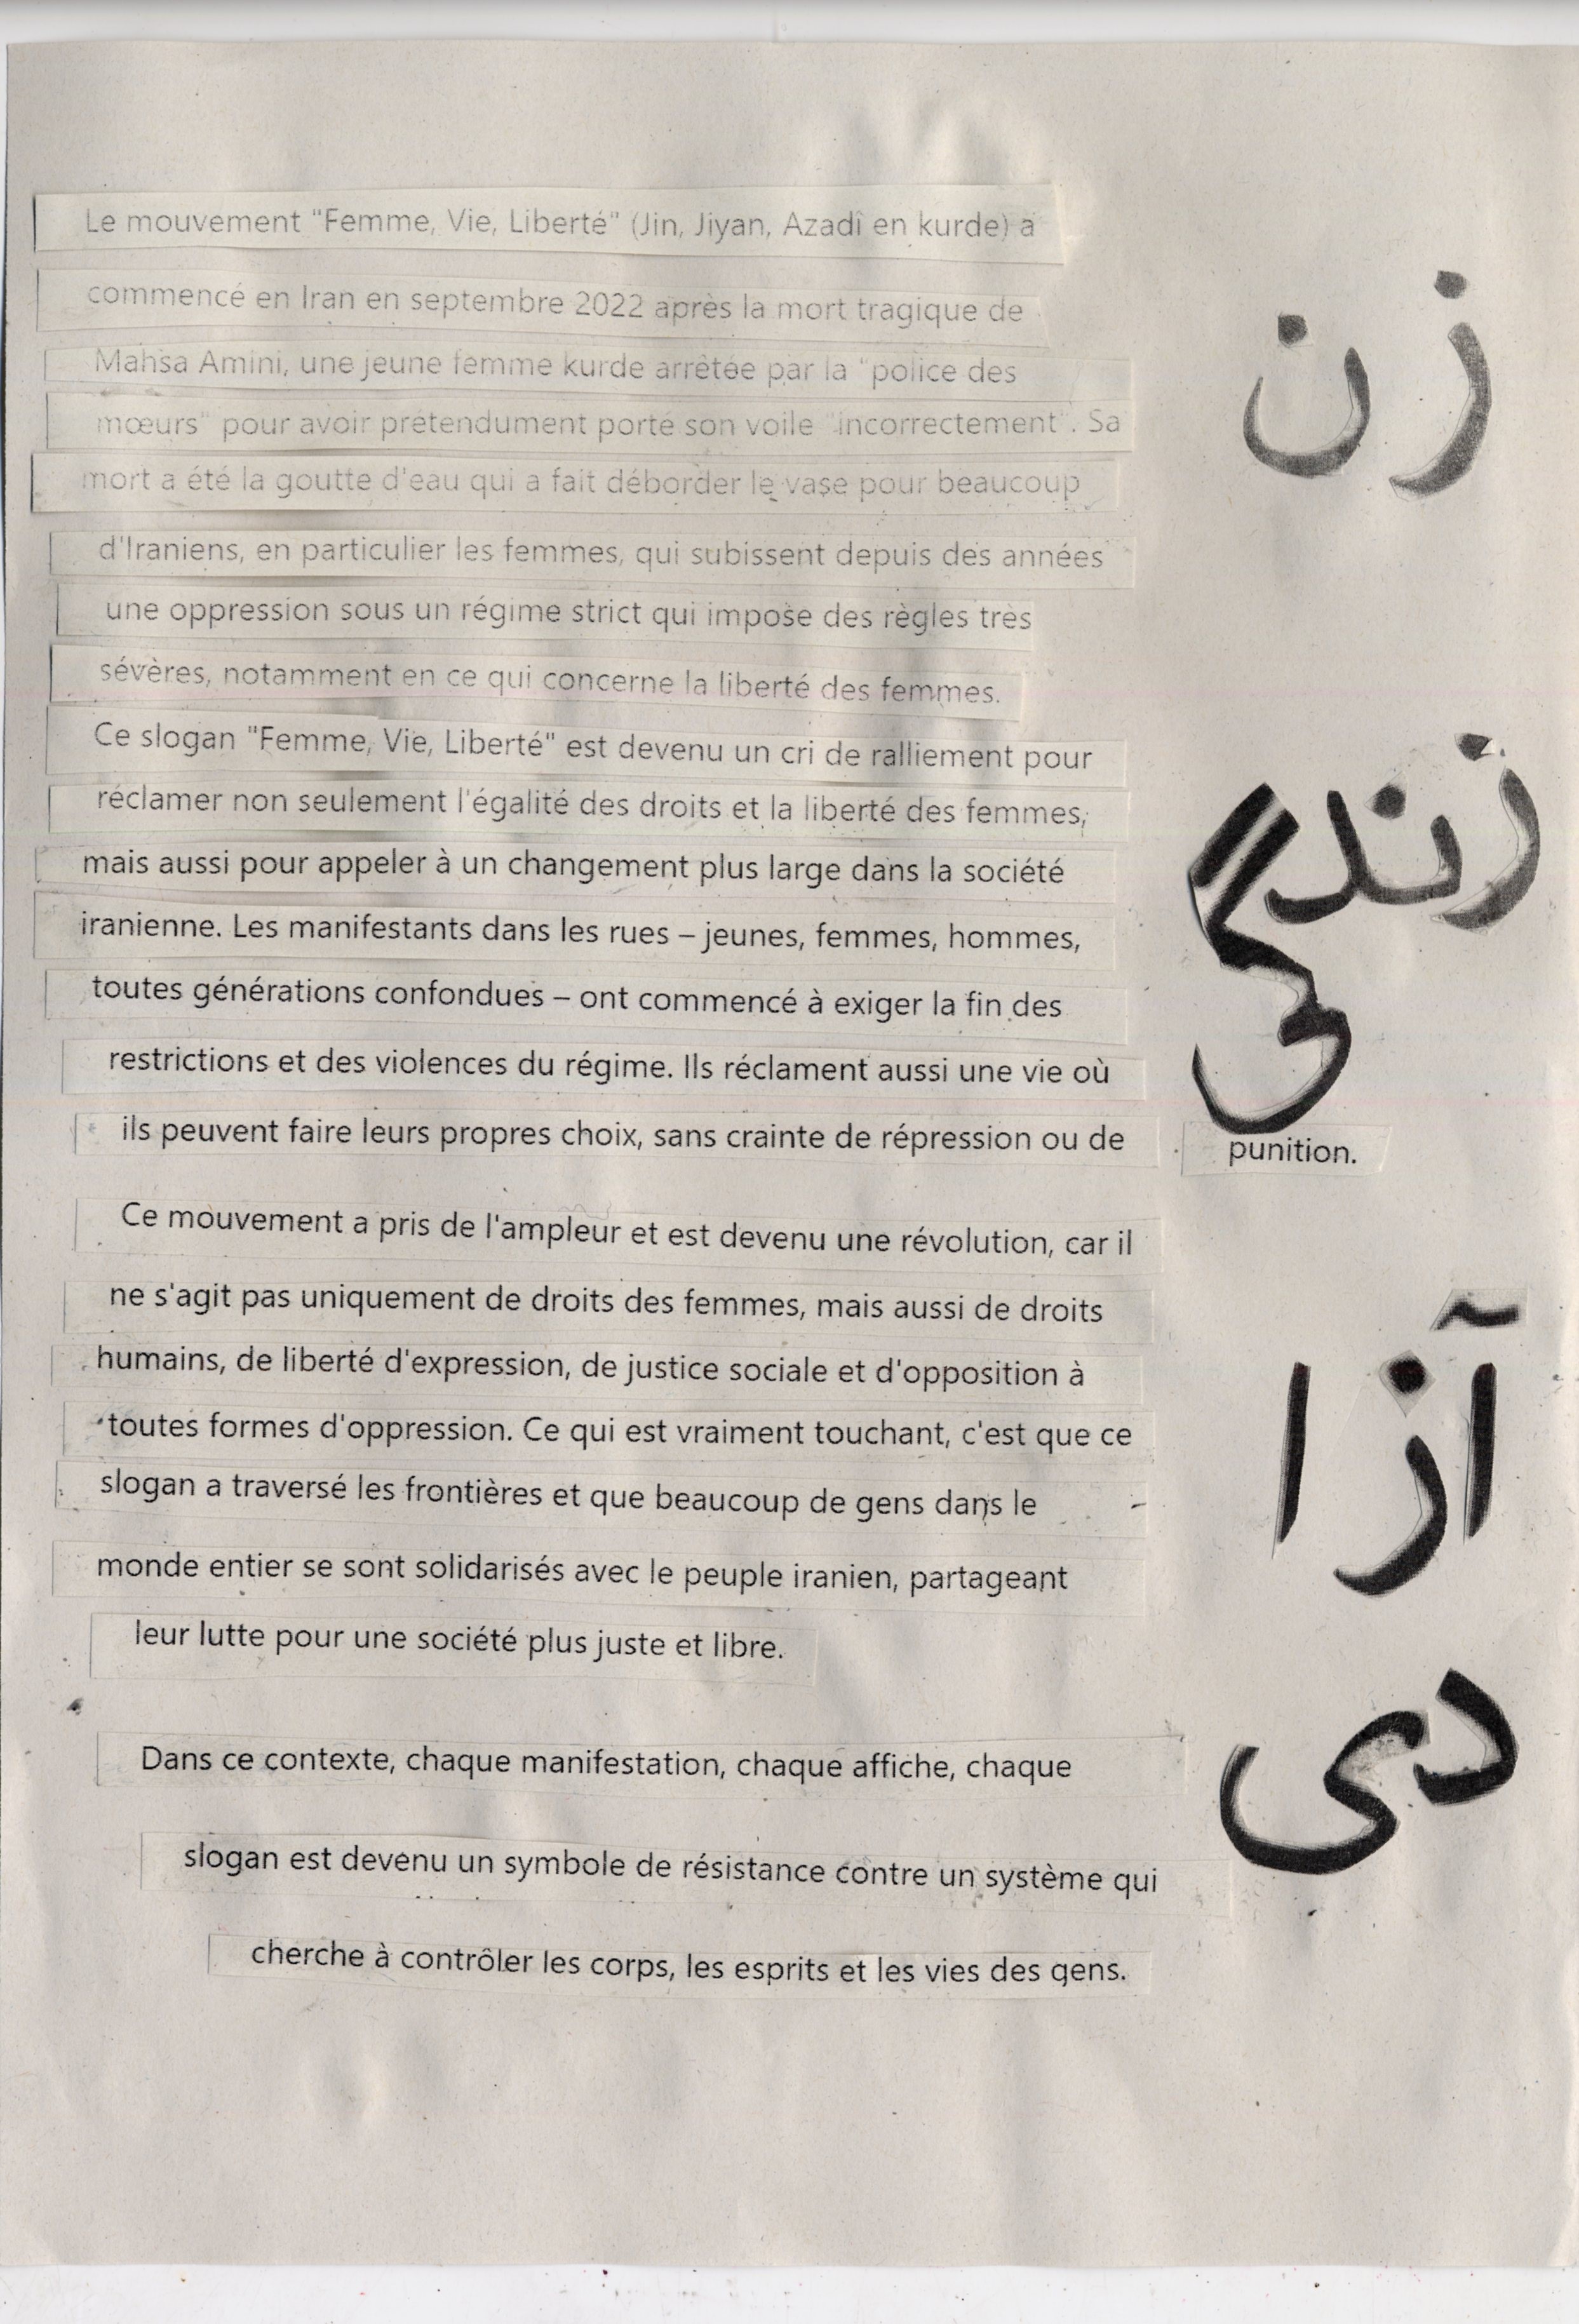 Le mouvement "Femme, Vie, Liberté" (Jin, Jiyan, Azadî en kurde) a
commencé en Iran en septembre 2022 après la mort tragique de
Mahsa Amini, une jeune femme kurde arrêtée par la "police des
mœurs" pour avoir prétendument porté son voile "incorrectement". Sa
mort a été la goutte d'eau qui a fait déborder le vase pour beaucoup
d'Iraniens, en particulier les femmes, qui subissent depuis des années
une oppression sous un régime strict qui impose des règles très
sévères, notamment en ce qui concerne la liberté des femmes.
Ce slogan "Femme, Vie, Liberté" est devenu un cri de ralliement pour
réclamer non seulement l'égalité des droits et la liberté des femmes,
mais aussi pour appeler à un changement plus large dans la société
iranienne. Les manifestants dans les rues – jeunes, femmes, hommes,
toutes générations confondues – ont commencé à exiger la fin des
restrictions et des violences du régime. Ils réclament aussi une vie où
ils peuvent faire leurs propres choix, sans crainte de répression ou de
punition.
Ce mouvement a pris de l'ampleur et est devenu une révolution, car il
ne s'agit pas uniquement de droits des femmes, mais aussi de droits
humains, de liberté d'expression, de justice sociale et d'opposition à
toutes formes d'oppression. Ce qui est vraiment touchant, c'est que ce
slogan a traversé les frontières et que beaucoup de gens dans le
monde entier se sont solidarisés avec le peuple iranien, partageant
leur lutte pour une société plus juste et libre.
Dans ce contexte, chaque manifestation, chaque affiche, chaque
slogan est devenu un symbole de résistance contre un système qui
cherche à contrôler les corps, les esprits et les vies des gens.
زن
زندگی
آزا
دی